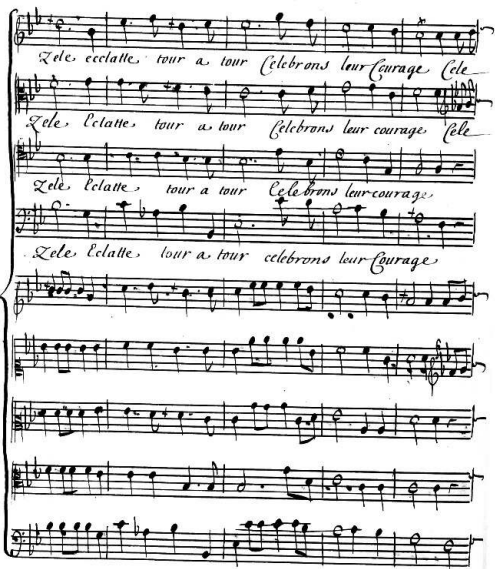 Zele ecclatte tour a tour Celebrons leur Courage Cele
Zele Eclatte tour a tour Celebrons leur courage Cele
Zele Eclatte tour a tour Celebrons leur courage
Zele Eclatte tour a tour celebrons leur Courage